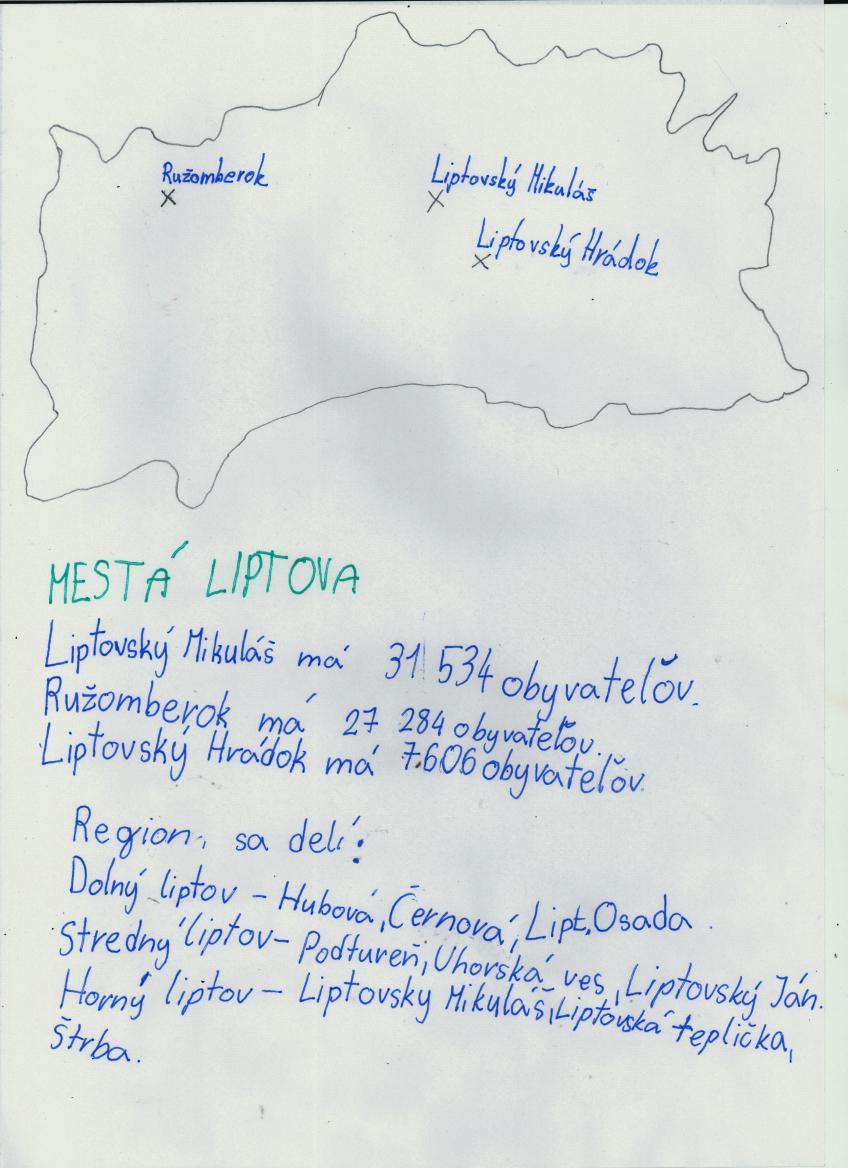 Ružomberok
Liptovský Mikuláš
Liptovský Hrádok
MESTÁ LIPTOVA
Liptovský Mikuláš má 31 534 obyvateľov.
Ružomberok má 27 284 obyvateľov.
Liptovský Hrádok má 7.606 obyvateľov.
Region, sa delí:
Dolný liptov - Hubová, Černová, Lipt. Osada.
Stredný liptov - Podtureň, Uhorská ves, Liptovský Ján.
Horný liptov - Liptovsky Mikuláš, Liptovská teplička,
Štrba.